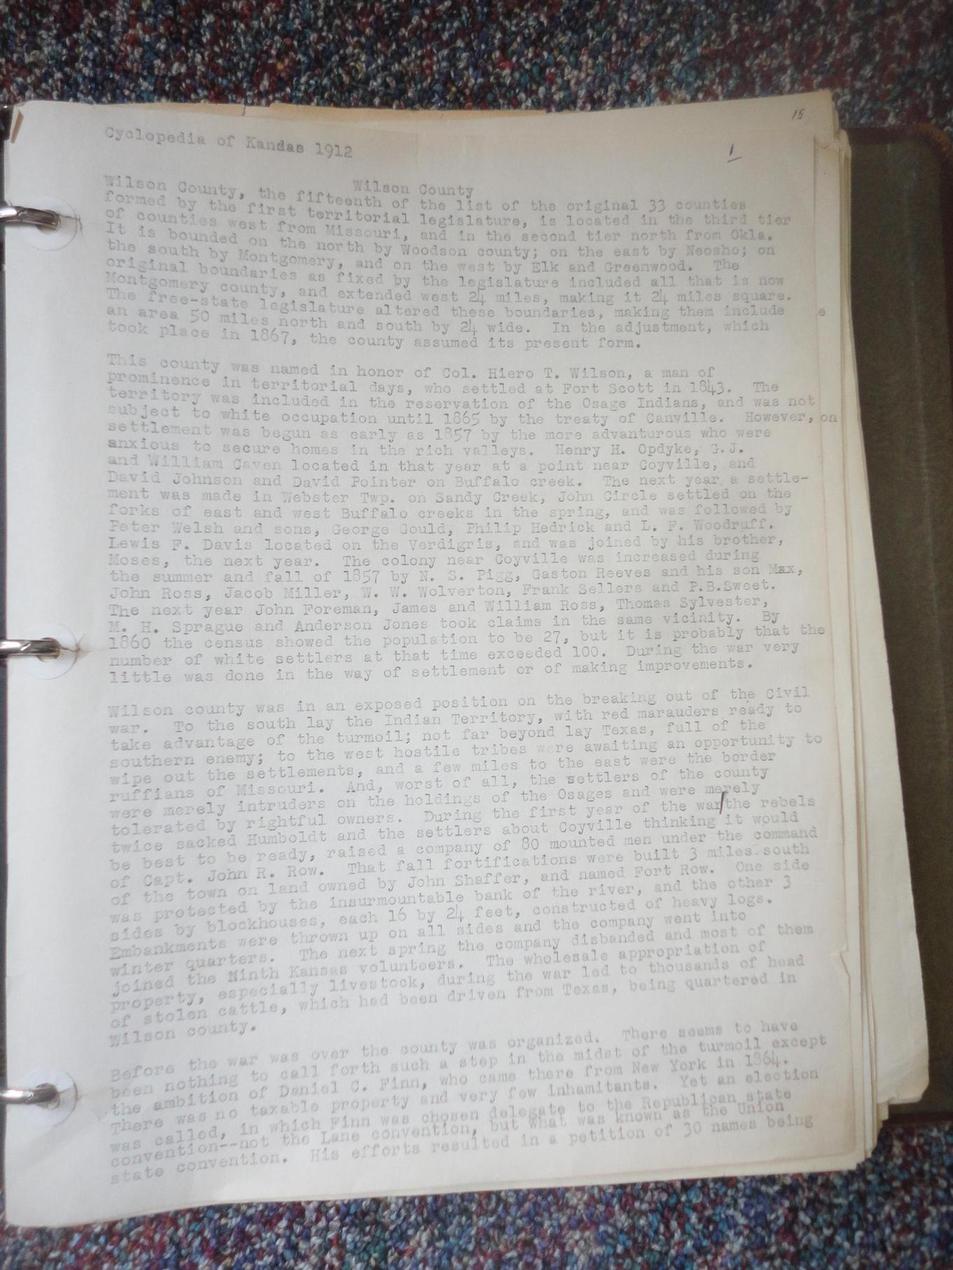 15
Cyclopedia of Kandas 1912
1
Wilson County
Wilson County, the fifteenth of the list of the original 33 counties
formed by the first territorial legislature, is located in the third tier
of counties west from Missouri, and in the second tier north from Okla.
It is bounded on the north by Woodson county; on the east by Neosho; on
the south by Montgomery, and on the west by Elk and Greenwood. The
original boundaries as fixed by the legislature included all that is now
Montgomery county, and extended west 24 miles, making it 24 miles square.
The free-state legislature altered these boundaries, making them include
an area 50 miles north and south by 24 wide. In the adjustment, which
took place in 1867, the county assumed its present form.
This county was named in honor of Col. Hiero T. Wilson, a man of
prominence in territorial days, who settled at Fort Scott in 1843. The
territory was included in the reservation of the Osage Indians, and was not
subject to white occupation until 1865 by the treaty of Canville. However, on
settlement was begun as early as 1857 by the more advanturous who were
anxious to secure homes in the rich valleys. Henry H. Opdyke, G.J.
and William Caven located in that year at a point near Coyville, and
David Johnson and David Pointer on Buffalo creek. The next year a settle-
ment was made in Webster Twp. on Sandy Creek, John Circle settled on the
forks of east and west Buffalo creeks in the spring, and was followed by
Peter Welsh and sons, George Gould, Philip Hedrick and L. F. Woodruff.
Lewis F. Davis located on the Verdigris, and was joined by his brother,
Moses, the next year. The colony near Coyville was increased during
the summer and fall of 1857 by N. S. Pigg, Gaston Reeves and his son Max,
John Ross, Jacob Miller, W. W. Wolverton, Frank Sellers and P.B.Sweet.
The next year John Foreman, James and William Ross, Thomas Sylvester,
M. H. Sprague and Anderson Jones took claims in the same vicinity. By
1860 the census showed the population to be 27, but it is probably that the
number of white settlers at that time exceeded 100. During the war very
little was done in the way of settlement or of making improvements.
Wilson county was in an exposed position on the breaking out of the Civil
war. To the south lay the Indian Territory, with red marauders ready to
take advantage of the turmoil; not far beyond lay Texas, full of the
southern enemy; to the west hostile tribes were awaiting an opportunity to
wipe out the settlements, and a few miles to the east were the border
ruffians of Missouri. And, worst of all, the settlers of the county
were merely intruders on the holdings of the Osages and were merely
tolerated by rightful owners. During the first year of the war/the rebels
twice sacked Humboldt and the settlers about Coyville thinking it would
be best to be ready, raised a company of 80 mounted men under the command
of Capt. John R. Row. That fall fortifications were built 3 miles south
of the town on land owned by John Shaffer, and named Fort Row. One side
was protected by the insurmountable bank of the river, and the other 3
sides by blockhouses, each 16 by 24 feet, constructed of heavy logs.
Embankments were thrown up on all sides and the company went into
winter quarters. The next spring the company disbanded and most of them
joined the Ninth Kansas volunteers. The wholesale appropriation of
property, especially livestock, during the war led to thousands of head
of stolen cattle, which had been driven from Texas, being quartered in
Wilson county.
Before the war was over the county was organized. There seems to have
been nothing to call forth such a step in the midst of the turmoil except
the ambition of Daniel C. Finn, who came there from New York in 1864.
There was no taxable property and very few inhamitants. Yet an election
was called, in which Finn was chosen delegate to the Republican state
convention--not the Lane convention, but what was known as the Union
state convention. His efforts resulted in a petition of 30 names being